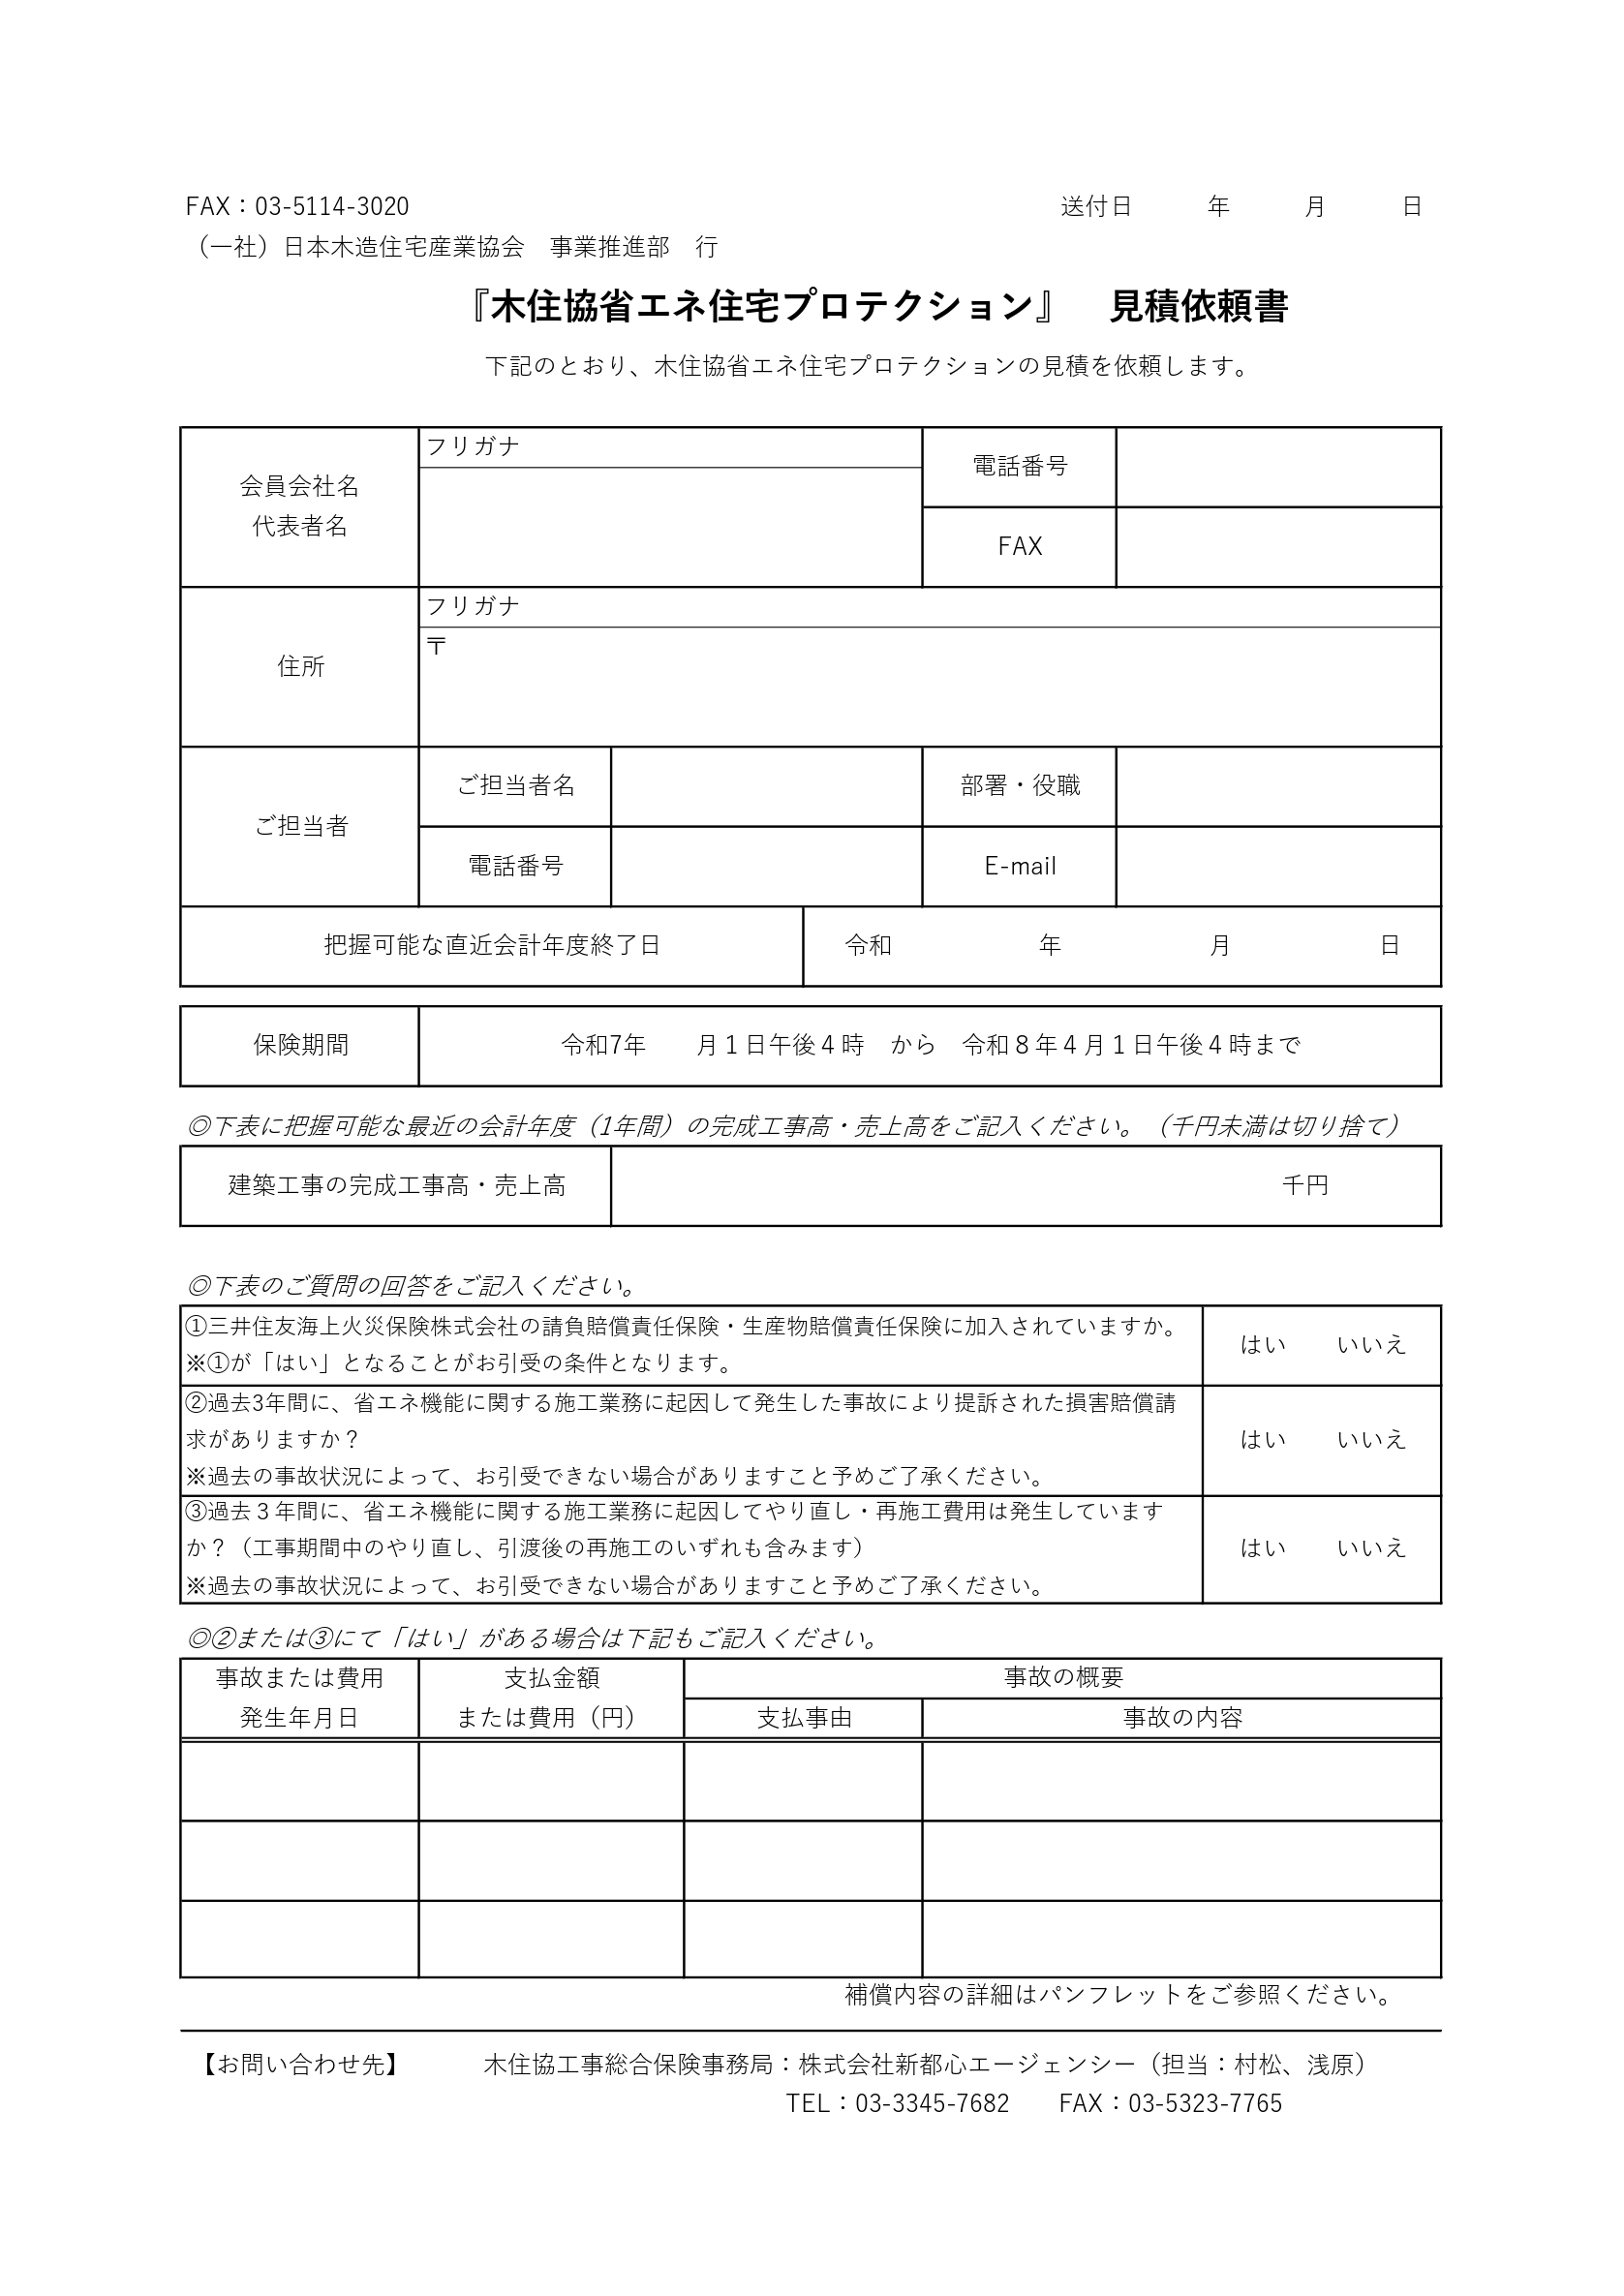 FAX：03-5114-3020　送付日　年　月　日
（一社）日本木造住宅産業協会　事業推進部　行
『木住協省エネ住宅プロテクション』　見積依頼書
下記のとおり、木住協省エネ住宅プロテクションの見積を依頼します。
会員会社名
代表者名
フリガナ
電話番号
FAX
住所
フリガナ
〒
ご担当者
ご担当者名
部署・役職
電話番号
E-mail
把握可能な直近会計年度終了日　令和　年　月　日
保険期間　令和7年　　月１日午後４時　から　令和８年４月１日午後４時まで
◎下表に把握可能な最近の会計年度（1年間）の完成工事高・売上高をご記入ください。（千円未満は切り捨て）
建築工事の完成工事高・売上高　千円
◎下表のご質問の回答をご記入ください。
①三井住友海上火災保険株式会社の請負賠償責任保険・生産物賠償責任保険に加入されていますか。
※①が「はい」となることがお引受の条件となります。
はい　　いいえ
②過去3年間に、省エネ機能に関する施工業務に起因して発生した事故により提訴された損害賠償請
求がありますか？
※過去の事故状況によって、お引受できない場合がありますこと予めご了承ください。
はい　　いいえ
③過去３年間に、省エネ機能に関する施工業務に起因してやり直し・再施工費用は発生しています
か？（工事期間中のやり直し、引渡後の再施工のいずれも含みます）
※過去の事故状況によって、お引受できない場合がありますこと予めご了承ください。
はい　　いいえ
◎②または③にて「はい」がある場合は下記もご記入ください。
事故または費用
発生年月日
支払金額
または費用（円）
事故の概要
支払事由
事故の内容
補償内容の詳細はパンフレットをご参照ください。
【お問い合わせ先】　木住協工事総合保険事務局：株式会社新都心エージェンシー（担当：村松、浅原）
TEL：03-3345-7682　　FAX：03-5323-7765